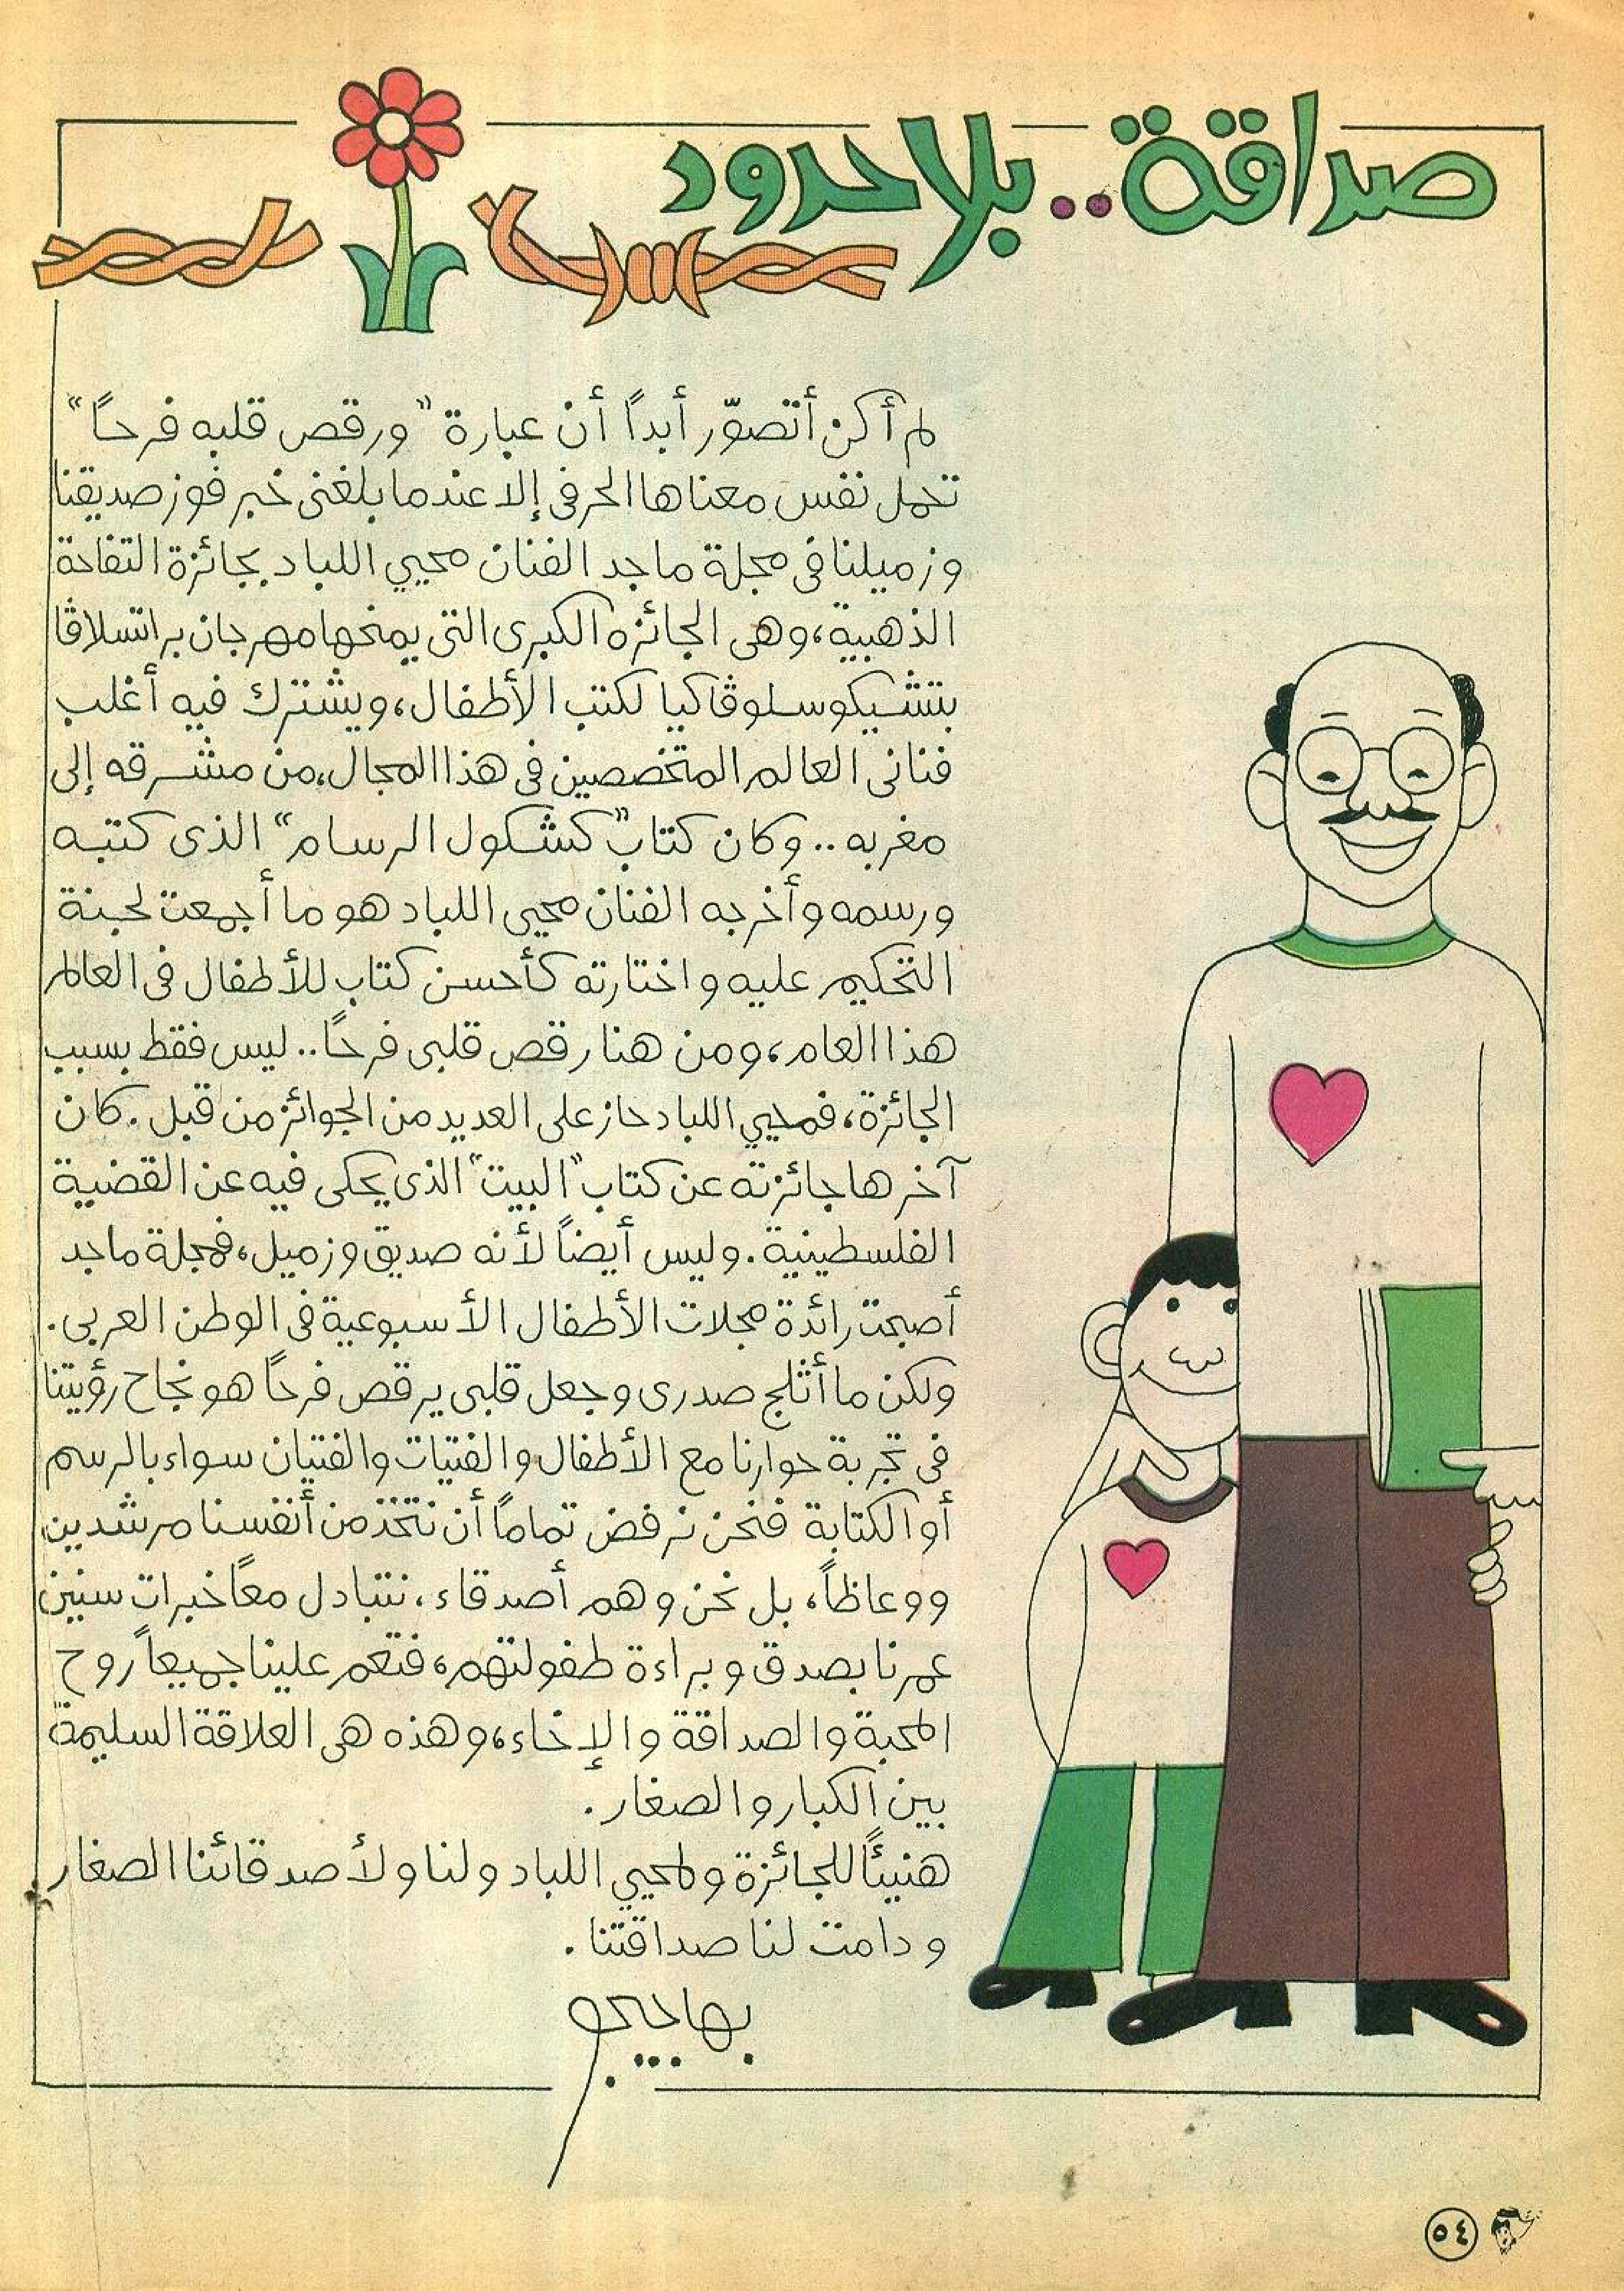 صداقة.. بلا حدود
لم أكن أتصوّر أبداً أن عبارة "ورقص قلبه فرحاً"
تحمل نفس معناها الحرفى إلا عندما بلغنى خبر فوز صديقنا
وزميلنا فى مجلة ماجد الفنان محيي اللباد بجائزة التفاحة
الذهبية، وهى الجائزه الكبرى التى يمنحها مهرجان براتسلاڤا
بتشيكوسلوڤاكيا لكتب الأطفال، ويشترك فيه أغلب
فنانى العالم المتخصصين فى هذا المجال، من مشرقه إلى
مغربه.. وكان كتاب "كشكول الرسام" الذى كتبه
ورسمه وأخرجه الفنان محيى اللباد هو ما أجمعت لجنة
التحكيم عليه واختارته كأحسن كتاب للأطفال فى العالم
هذا العام، ومن هنا رقص قلبى فرحاً.. ليس فقط بسبب
الجائزة، فمحيي اللباد حاز على العديد من الجوائز من قبل. كان
آخرها جائزته عن كتاب "البيت" الذى يحكى فيه عن القضية
الفلسطينية. وليس أيضاً لأنه صديق وزميل، فمجلة ماجد
أصبحت رائدة مجلات الأطفال الأسبوعية فى الوطن العربى.
ولكن ما أثلج صدرى وجعل قلبى يرقص فرحاً هو نجاح رؤيتنا
فى تجربة حوارنا مع الأطفال والفتيات والفتيان سواء بالرسم
أو الكتابة فنحن نرفض تماماً أن نتخذ من أنفسنا مرشدين
ووعاظاً، بل نحن وهم أصدقاء، نتبادل معاً خبرات سنين
عمرنا بصدق وبراءة طفولتهم، فتعم علينا جميعاً روح
المحبة والصداقة والإخاء، وهذه هى العلاقة السليمة
بين الكبار والصغار.
هنيئاً للجائزة ولمحيي اللباد ولنا ولأصدقائنا الصغار.
ودامت لنا صداقتنا.
بهاجيجو
٥٤